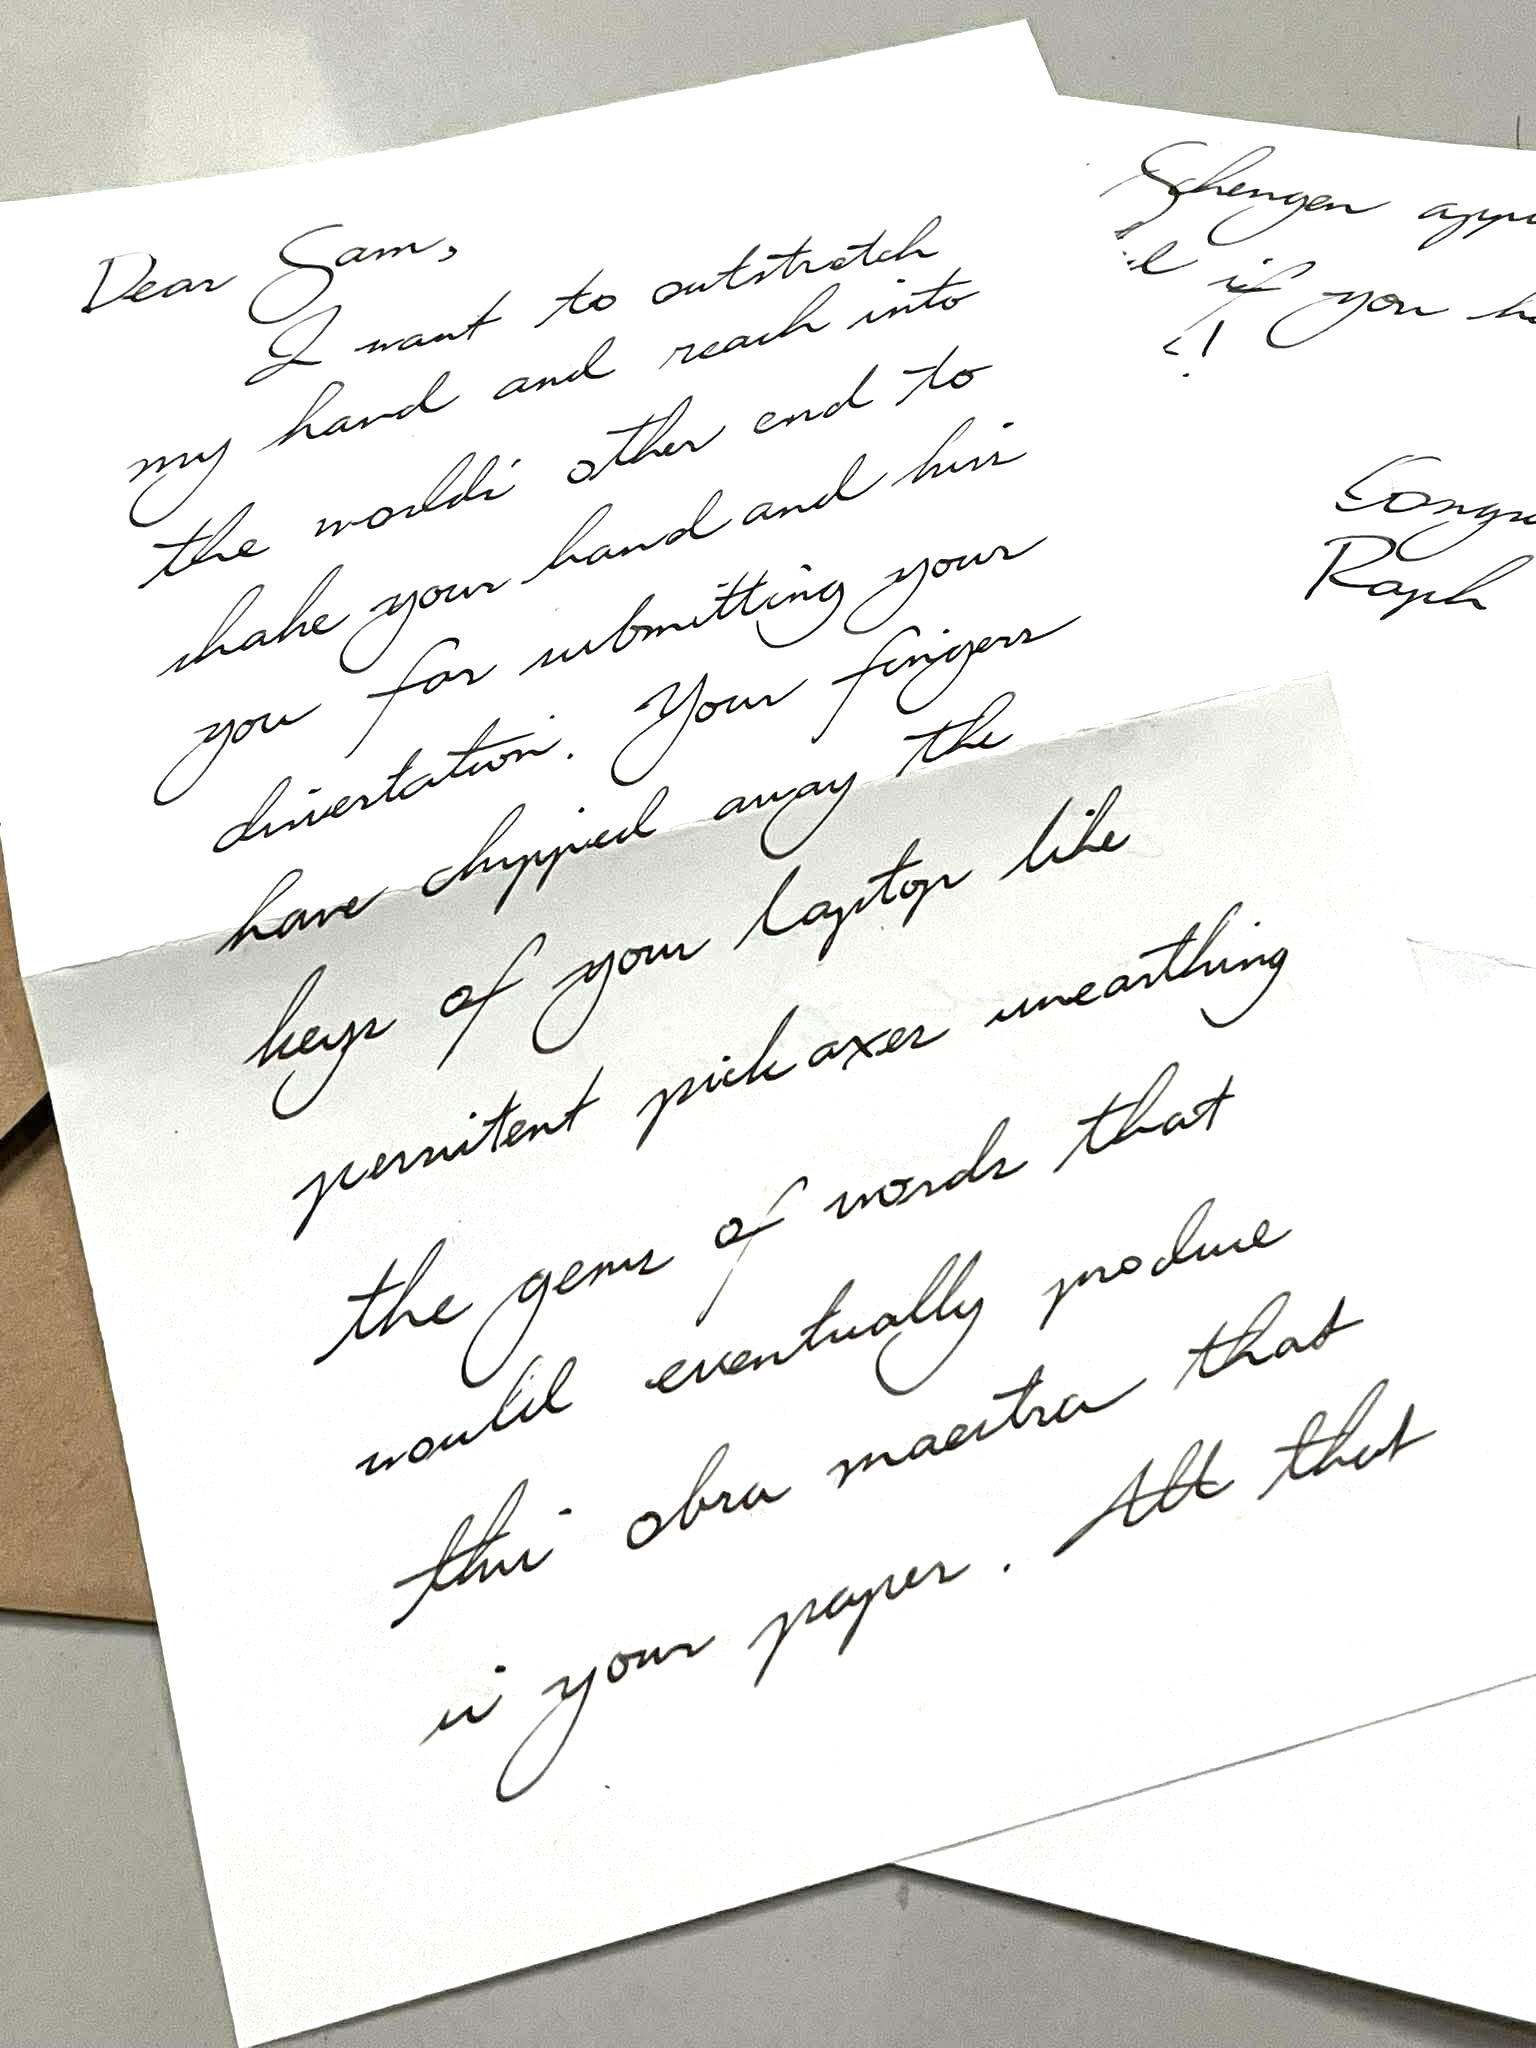 Dear Sam,
I want to outstretch
my hand and reach into
the world's other end to
shake your hand and kiss
you for submitting your
dissertation. Your fingers
have chipped away the
keys of your laptop like
persistent pickaxes unearthing
the gems of words that
would eventually produce
this obra maestra that
is your paper. All that
Schengen
if you
Raph